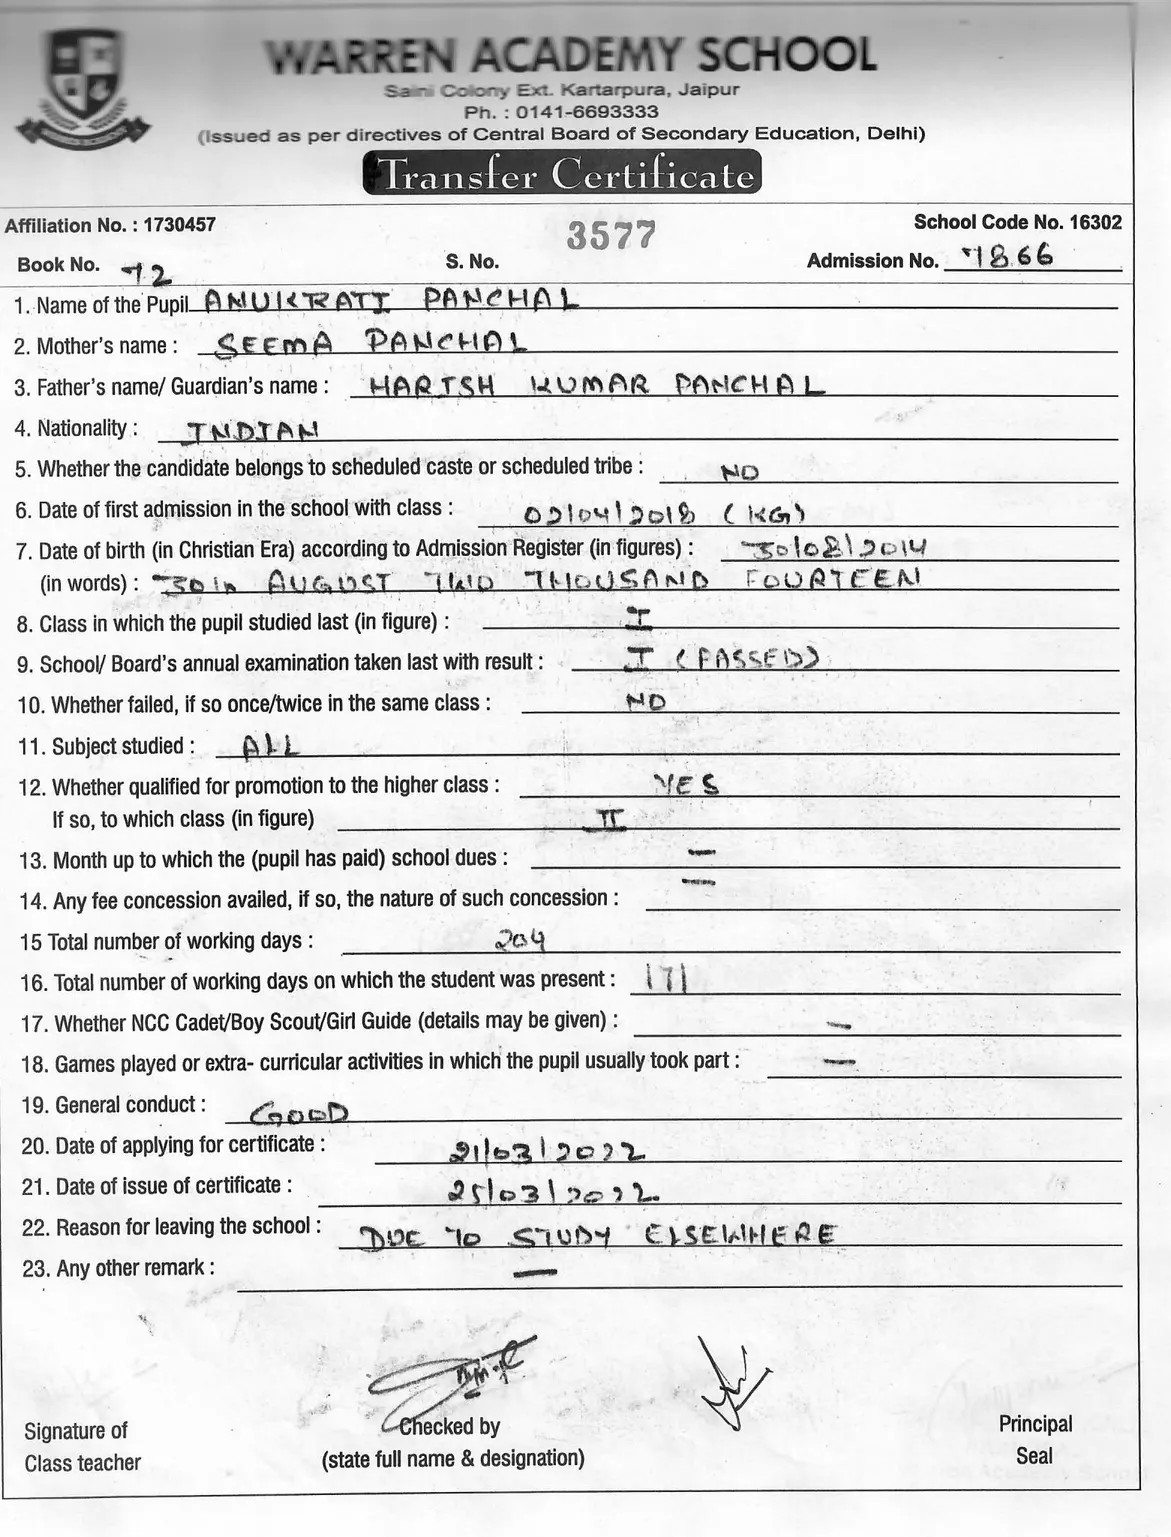 WARREN ACADEMY SCHOOL
Saini Colony Ext. Kartarpura, Jaipur
Ph. : 0141-6693333
(Issued as per directives of Central Board of Secondary Education, Delhi)
Transfer Certificate
Affiliation No. : 1730457 3577 School Code No. 16302
Book No. 72 S. No. Admission No. 1866
1. Name of the Pupil ANUKRATI PANCHAL
2. Mother's name : SEEMA PANCHAL
3. Father's name/ Guardian's name : HARISH KUMAR PANCHAL
4. Nationality : INDIAN
5. Whether the candidate belongs to scheduled caste or scheduled tribe : NO
6. Date of first admission in the school with class : 02/04/2018 (KG)
7. Date of birth (in Christian Era) according to Admission Register (in figures) : 30/08/2014
(in words) : 30th AUGUST TWO THOUSAND FOURTEEN
8. Class in which the pupil studied last (in figure) : I
9. School/ Board's annual examination taken last with result : I (PASSED)
10. Whether failed, if so once/twice in the same class : NO
11. Subject studied : ALL
12. Whether qualified for promotion to the higher class : YES
If so, to which class (in figure) II
13. Month up to which the (pupil has paid) school dues : —
14. Any fee concession availed, if so, the nature of such concession : —
15 Total number of working days : 204
16. Total number of working days on which the student was present : 171
17. Whether NCC Cadet/Boy Scout/Girl Guide (details may be given) : —
18. Games played or extra- curricular activities in which the pupil usually took part : —
19. General conduct : GOOD
20. Date of applying for certificate : 21/03/2022
21. Date of issue of certificate : 25/03/2022
22. Reason for leaving the school : DUE TO STUDY ELSEWHERE
23. Any other remark : —
Signature of Checked by Principal
Class teacher (state full name & designation) Seal